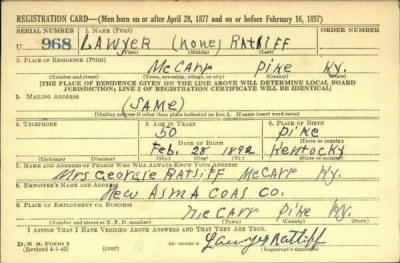 REGISTRATION CARD—(Men born on or after April 28, 1877 and on or before February 16, 1897)
SERIAL NUMBER 1. NAME (Print) ORDER NUMBER
U 968 LAWYER (NONE) RATLIFF
(First) (Middle) (Last)
2. PLACE OF RESIDENCE (Print)
McCARR PIKE KY.
(Number and street) (Town, township, village, or city) (County) (State)
[THE PLACE OF RESIDENCE GIVEN ON THE LINE ABOVE WILL DETERMINE LOCAL BOARD
JURISDICTION; LINE 2 OF REGISTRATION CERTIFICATE WILL BE IDENTICAL]
3. MAILING ADDRESS
(SAME)
[Mailing address if other than place indicated on line 2. If same insert word same]
4. TELEPHONE 5. AGE IN YEARS 6. PLACE OF BIRTH
50 PIKE
DATE OF BIRTH (Town or county)
Feb. 28 1892 KENTUCKY
(Exchange) (Number) (Mo.) (Day) (Yr.) (State or country)
7. NAME AND ADDRESS OF PERSON WHO WILL ALWAYS KNOW YOUR ADDRESS
MRS GEORGIE RATLIFF McCARR KY.
8. EMPLOYER'S NAME AND ADDRESS
NEW COAL CO.
9. PLACE OF EMPLOYMENT OR BUSINESS
McCARR PIKE KY.
(Number and street or R. F. D. number) (Town) (County) (State)
I AFFIRM THAT I HAVE VERIFIED ABOVE ANSWERS AND THAT THEY ARE TRUE.
D. S. S. Form 1
(Revised 4-1-42) (over) Lawyer Ratliff
(Registrant's signature)